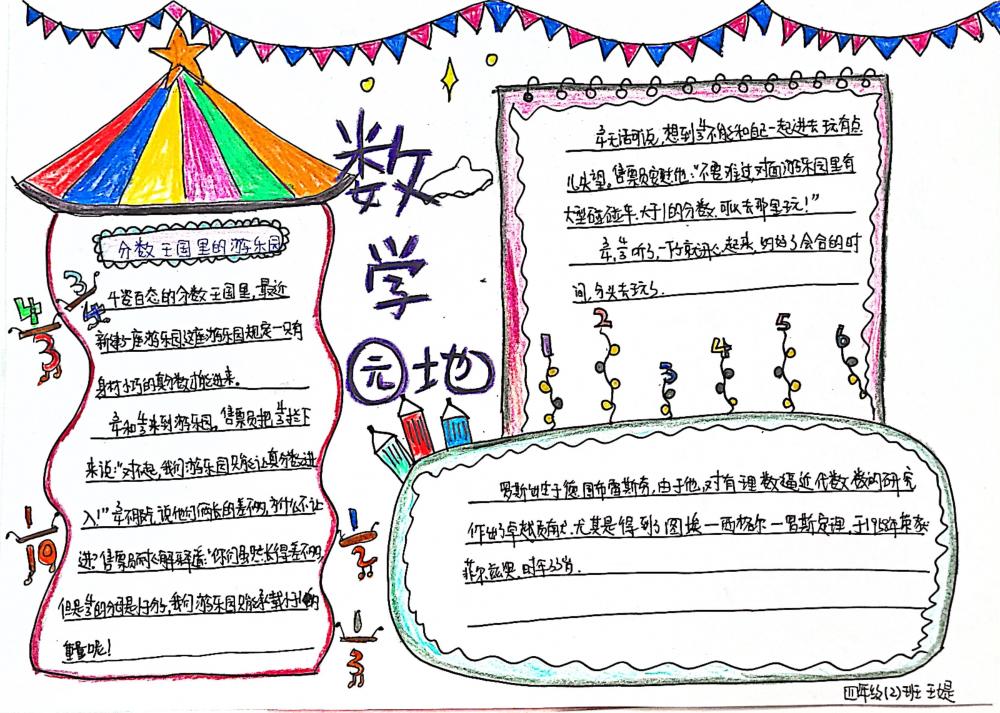 数学园地
分数王国里的游乐园
千姿百态的分数王国里,最近
新建了一座游乐园这座游乐园规定一只有
身材小巧的真分数才能进来。
来到游乐园,售票员把 拦下
来说:“对不起,我们游乐园只能让真分数进
入!” 不明白,说他们俩长的差不多,为什么不让
进?售票员耐心解释道:“你们虽然长得差不多,
但是 的分母是 ,我们游乐园只能承载 的
重量呢!
4/3
3/4
1/10
1/2
1/3
无话可说,想到 不能和自己一起进去玩有点
儿失望,售票员安慰他:“不要难过,对面游乐园里有
大型碰碰车.大于1的分数.可以去那里玩!”
听了,一下就开心起来,约好了会合的时
间,分头去玩了.
1
2
3
4
5
6
罗斯出生于德国布雷斯劳,由于他,对有理数逼近代数数的研究
作出了卓越贡献.尤其是得到了图埃一西格尔一罗斯定理,于1958年荣获
菲尔兹奖.时年33岁.
四年级(2)班 王媞